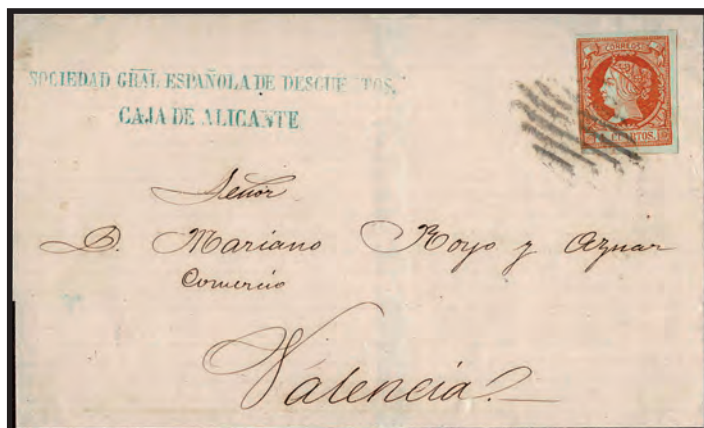 SOCIEDAD GRAL ESPAÑOLA DE DESCUENTOS.
CAJA DE ALICANTE
CORREOS
CUARTOS.
Señor
D. Mariano Royo y Aznar
Comercio
Valencia.